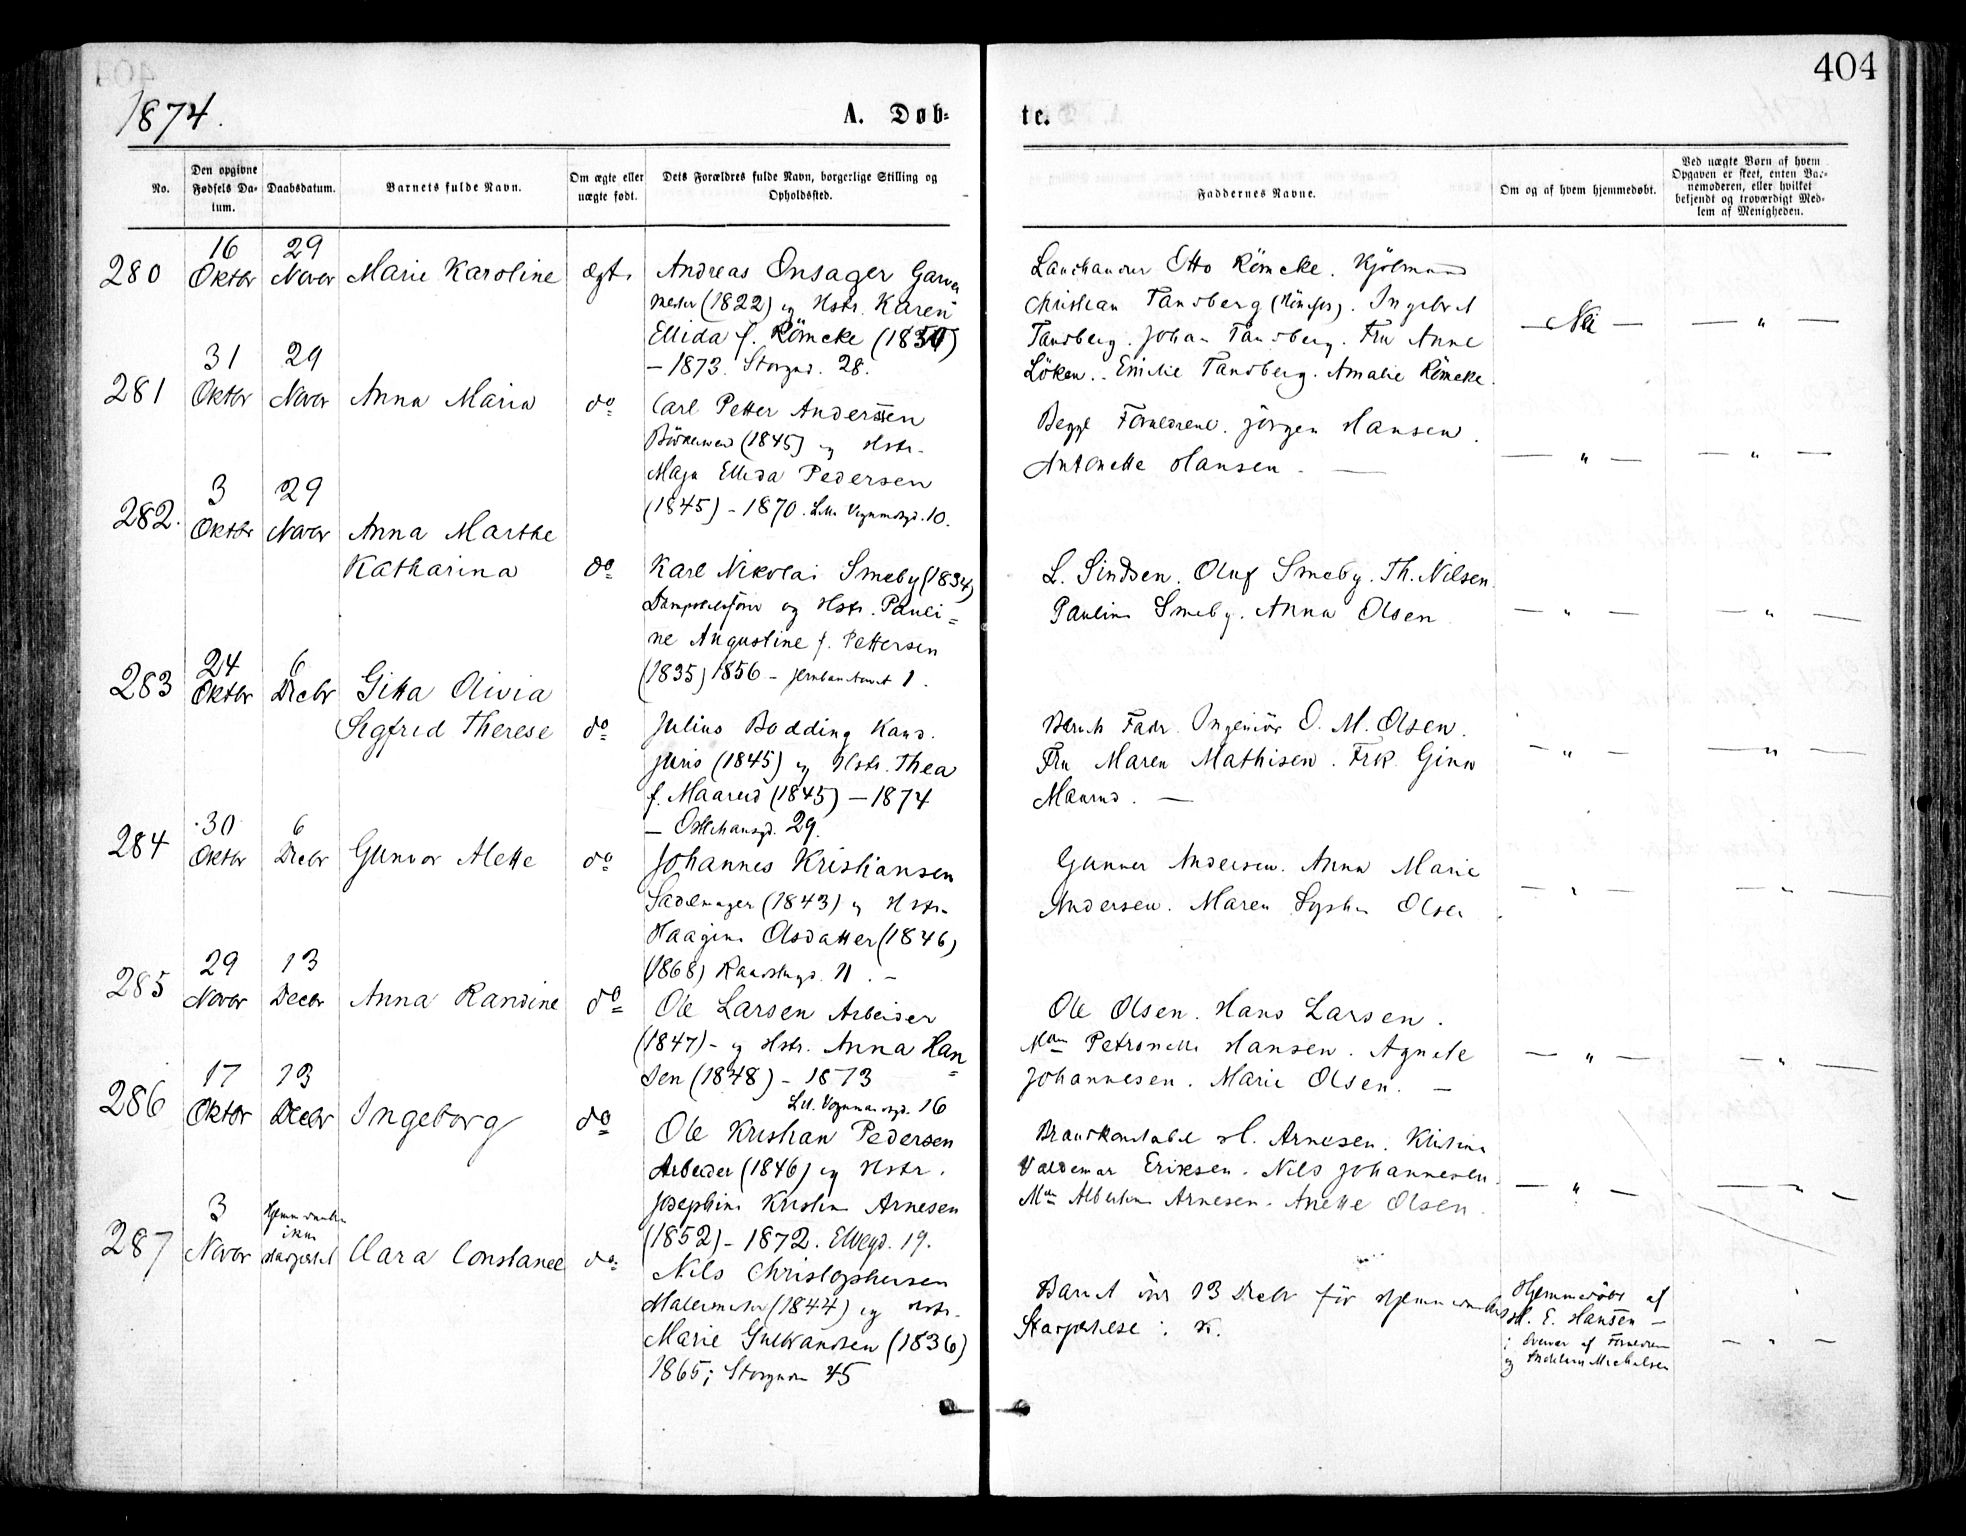 404
1874.
A. Døb-
te.
No.
Den opgivne Fødsels Da-tum.
Daabsdatum.
Barnets fulde Navn.
Om ægte eller uægte født.
Dets Forældres fulde Navn, borgerlige Stilling og Opholdssted.
Faddernes Navne.
Om og af hvem hjemmedøbt.
Ved uægte Børn af hvem Opgaven er skeet, enten Bar-nemoderen, eller hvilket bekjendt og troværdigt Med-lem af Menigheden.
280
16 Oktbr
29 Novbr
Marie Karoline
ægte
Andreas Onsager Garver
mester (1822) og Hstr. Karen
Ellida f. Römcke (1850)
— 1873. Storgd. 28.
Otto Römcke.
Christian Tandberg. Ingebret
Tandberg. Johan Tandberg. Fru Anne
Löken. Emilie Tandberg. Amalie Römcke.
— Nei —
— " —
281
31 Oktbr
29 Novbr
Anna Maria
do
Carl Petter Anderssen
(1845) og Hstr.
Maja Ellida Pedersen
(1845) - 1870. Lille Vognmdgd. 10.
Begge Forældrene. Jörgen Hansen.
Antonette Hansen. —
— " —
— " —
282.
3 Oktbr
29 Novbr
Anna Marthe
Katharina
do
Karl Nikolai Smeby (1834)
og Hstr. Pauli=
ne Augustine f. Pettersen
(1835) 1856 - 1.
L. Sindsen. Oluf Smeby. Th. Nilsen.
Pauline Smeby. Anna Olsen
— " —
— " —
283
24 Oktbr
6 Decbr
Gitta Olivia
Sigfrid Therese
do
Julius Bodding Kand.
juris (1845) og Hstr. Thea
f. Maarud (1845) — 1874
— 29.
Barnets Fader. Ingeniör O. M. Olsen.
Fru Maren Mathisen. Frk. Gina
Maarud. —
— " —
— " —
284
30 Oktbr
6 Decbr
Gunvor Alette
do
Johannes Kristiansen
Sadelmager (1843) og Hstr.
Haagine Olsdatter (1846)
(1868) 11. —
Gunner Andersen. Anna Marie
Andersen. Maren Sophie Olsen
— " —
— " —
285
29 Novbr
13 Decbr
Anna Randine
do
Ole Larsen Arbeider
(1847) - og Hstr. Anna Han=
sen (1848) - 1873
Lill. Vognmansgd. 16
Ole Olsen. Hans Larsen.
Mdm Petronelle Hansen. Agnete
Johannesen. Marie Olsen. —
— " —
— " —
286
17 Oktbr
13 Decbr
Ingeborg
do
Ole Kristian Pedersen
Arbeider (1846) og Hstr.
Josephine Kristine Arnesen
(1852) - 1872. Elvegd. 19.
Brandkonstabel H. Arnesen.
Valdemar Eriksen. Nils Johannesen.
Mdm Albertine Arnesen. Anette Olsen.
— " —
— " —
287
3 Novbr
Hjemmedaaben
ikke
stadfæstet
Clara Constance
do
Nils Christophersen
Malermester (1844) og Hstr.
Marie Gulbrandsen (1836)
1865; Storgaden 45
Barnet döde 13 Decbr för Hjemmedaabens
Stadfæstelse. K.
Hjemmedöbt af
M. E. Hansen —
i Overvær af Forældrene
og Michelsen
— " —